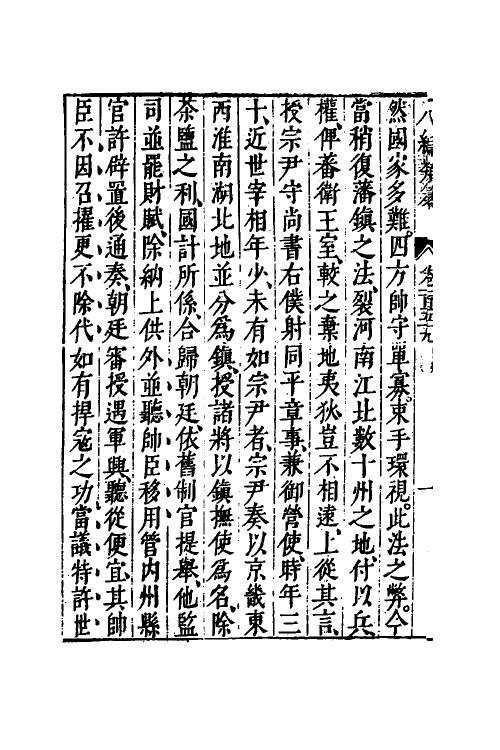 八編類纂 卷二百五十九 一
然國家多難。四方帥守單寡。束手環視。此法之弊。今
當稍復藩鎮之法、裂河南江北數十州之地、付以兵
權、俾蕃衛王室、較之棄地夷狄、豈不相遠、上從其言、
授宗尹守尚書右僕射同平章事、兼御營使、時年三
十、近世宰相年少、未有如宗尹者、宗尹奏以京畿東
西淮南湖北地並分為鎮、授諸將以鎮撫使為名、除
茶鹽之利、國計所係、合歸朝廷、依舊制官提舉、他監
司並罷財賦、除納上供外並聽帥臣移用管內州縣
官許辟置後通奏、朝廷審授遇軍興、聽從便宜、其帥
臣不因召擢更不除代如有捍寇之功當議特許世